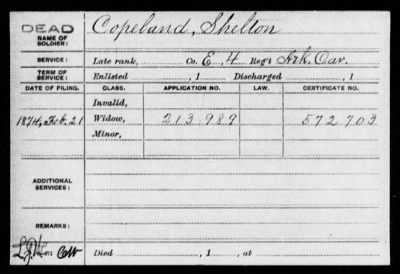 DEAD
NAME OF SOLDIER: Copeland, Shelton
SERVICE: Late rank, Co. E, 4 Reg't Ark. Cav.
TERM OF SERVICE: Enlisted , 1 Discharged , 1
DATE OF FILING. CLASS. APPLICATION NO. LAW. CERTIFICATE NO.
Invalid,
1874, Feb. 21 Widow, 213 989 572 703
Minor,
ADDITIONAL SERVICES:
REMARKS:
Died , 1 , at